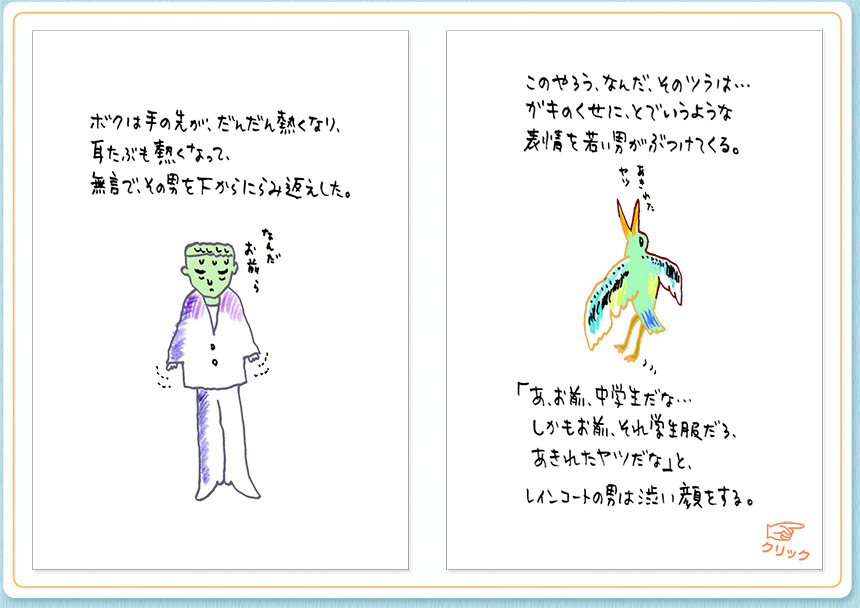 ボクは手の先が、だんだん熱くなり、
耳たぶも熱くなって、
無言で、その男を下からにらみ返えした。
なんだ
お前ら
このやろう、なんだ、そのツラは…
ガキのくせに、とでいうような
表情を若い男がぶつけてくる。
あきれた
ヤツ
「あ、お前、中学生だな…
しかもお前、それ学生服だろ、
あきれたヤツだな」と、
レインコートの男は渋い顔をする。
クリック